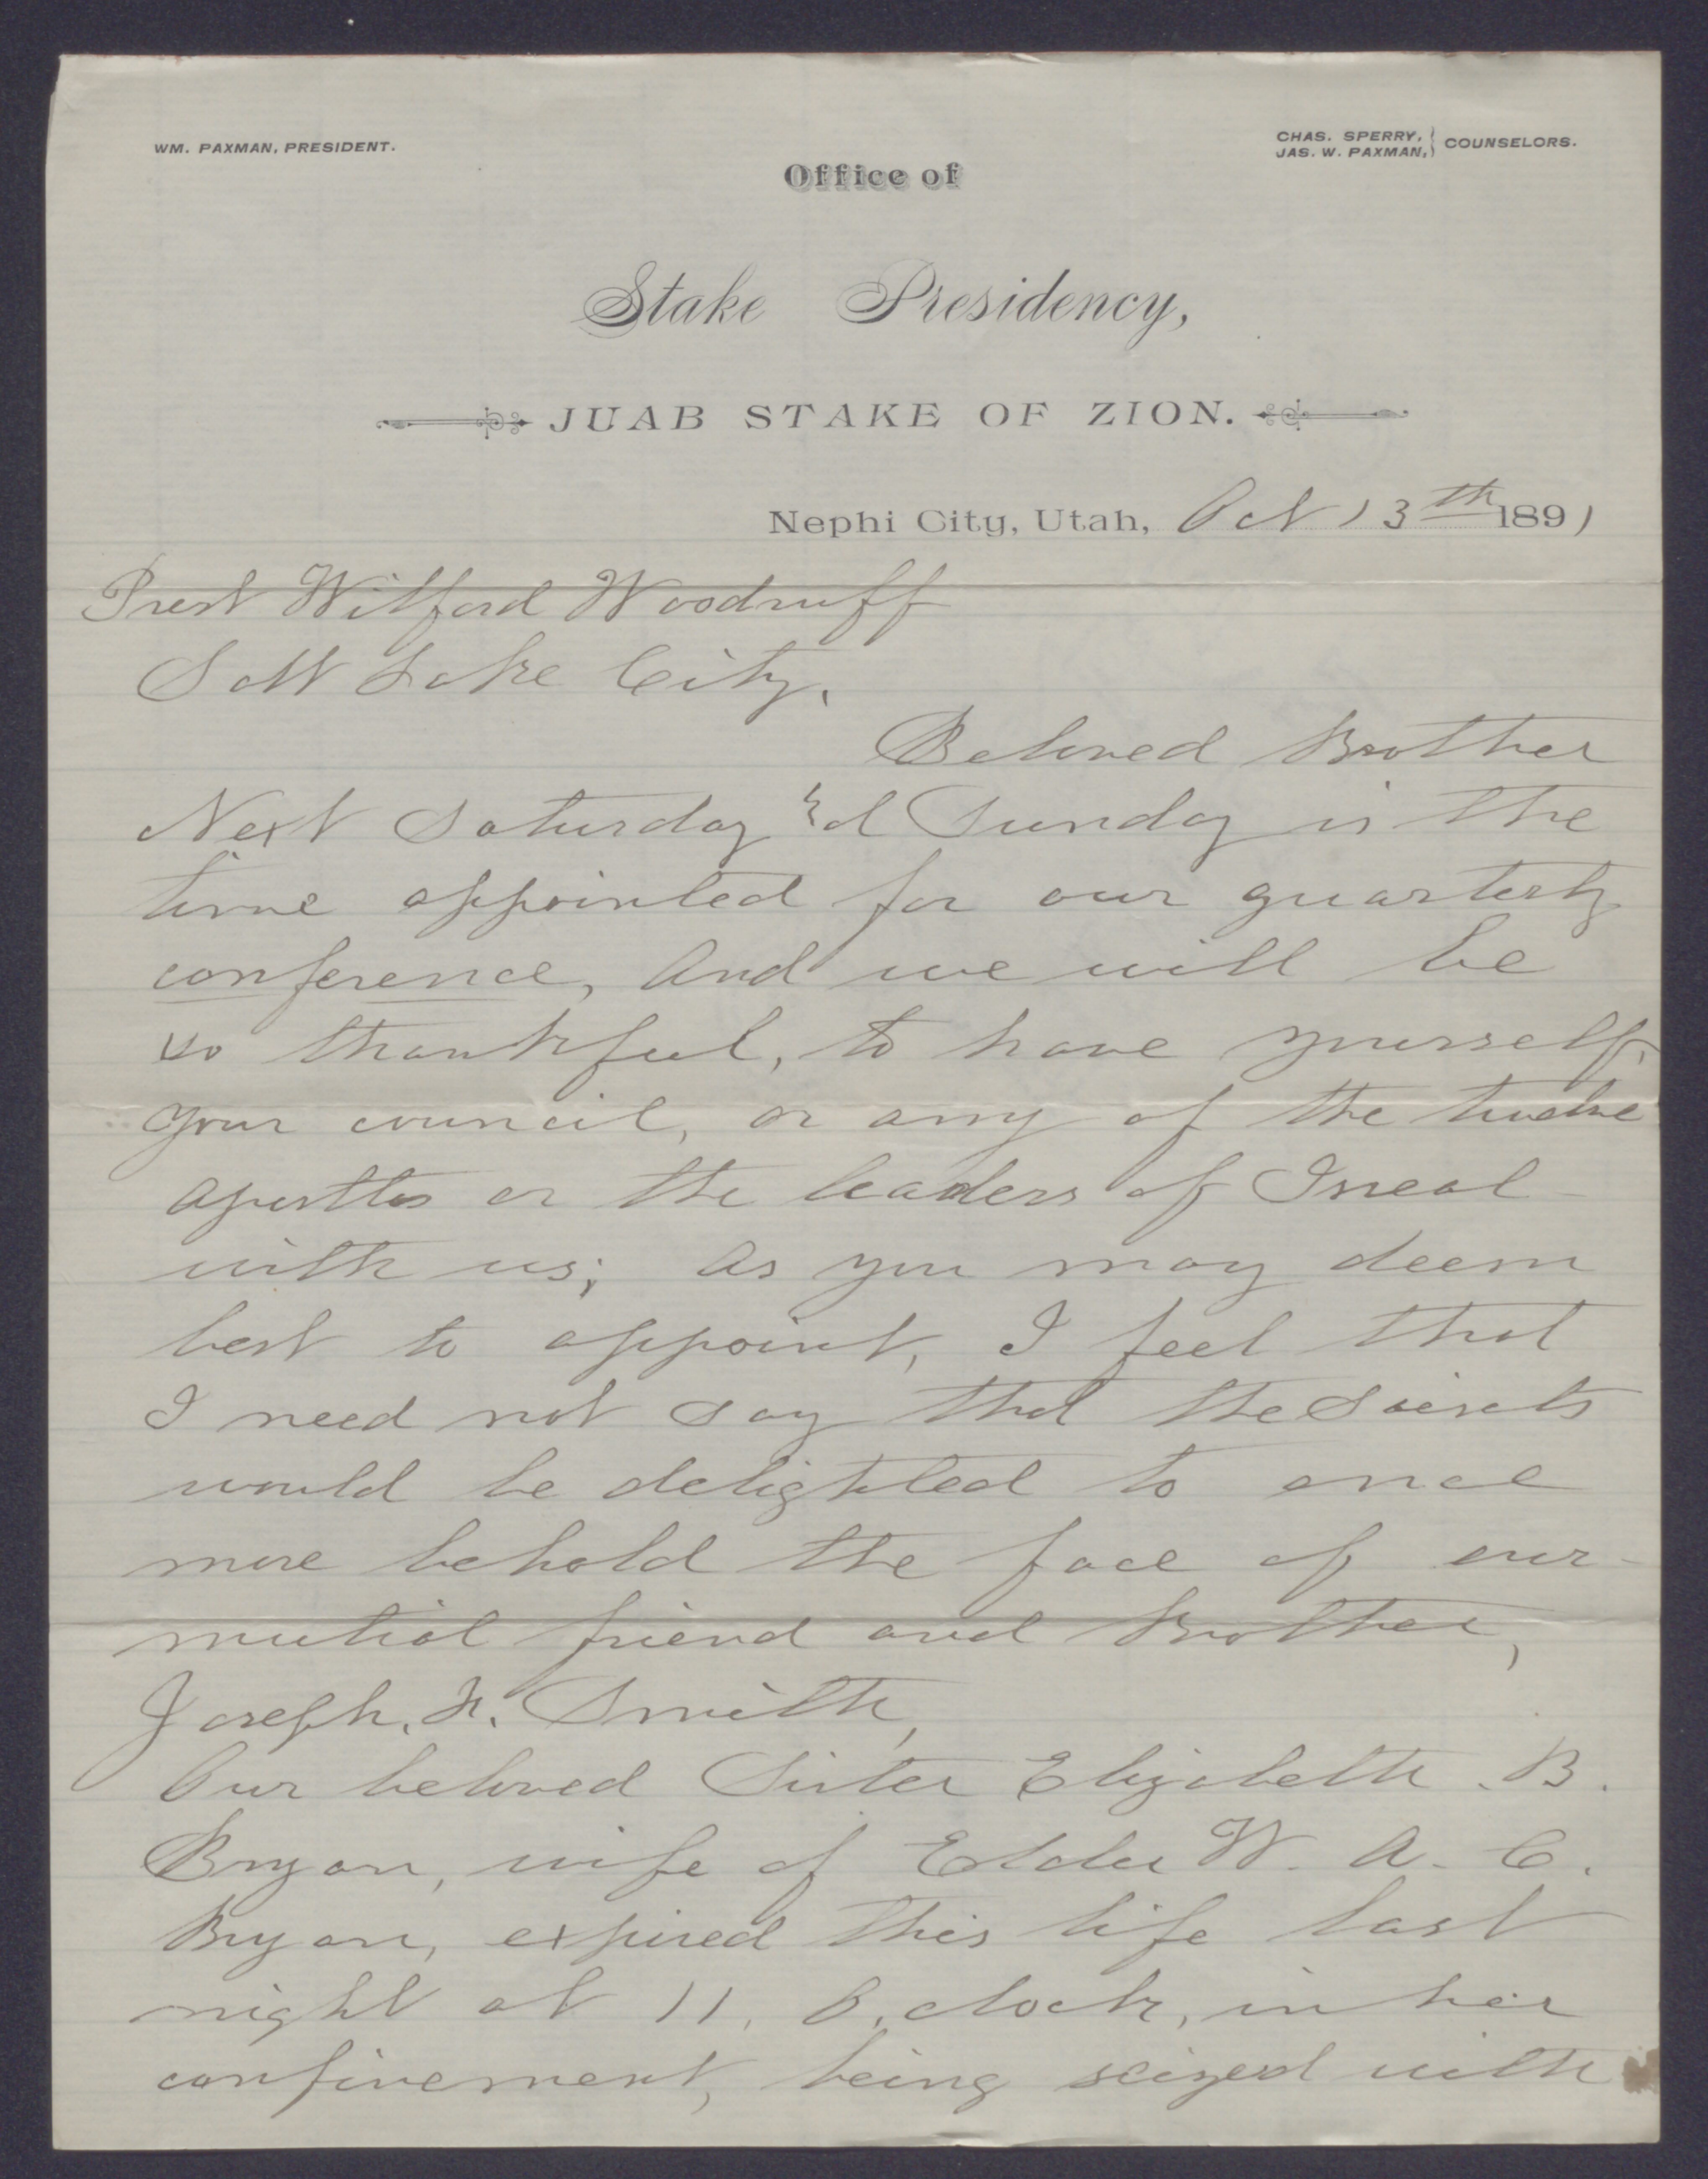 WM. PAXMAN, PRESIDENT.
CHAS. SPERRY,
JAS. W. PAXMAN,
COUNSELORS.
Office of
Stake Presidency,
JUAB STAKE OF ZION.
Nephi City, Utah, Oct 13th 1891
Prest Wilford Woodruff
Salt Lake City.
Beloved Brother
Next Saturday & Sunday is the
time appointed for our quarterly
conference, And we will be
so thankful, to have yourself,
your council, or any of the twelve
apostles or the leaders of Isreal
with us; As you may deem
best to appoint, I feel that
I need not say that the Saints
would be delighted to once
more behold the face of our
mutial friend and Brother,
Joseph. F. Smith,
Our beloved Sister Elizabeth. B.
Bryan, wife of Elder W. A. C.
Bryan, expired this life last
night at 11, O, clock, in her
confinement, being seized with